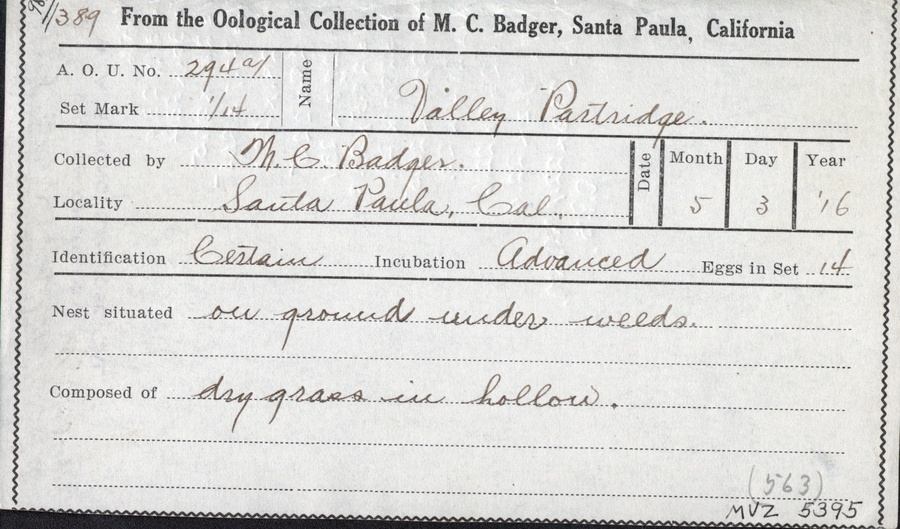 /389 From the Oological Collection of M. C. Badger, Santa Paula, California
A. O. U. No. 294a/ Name
Set Mark 1/14 Valley Partridge.
Collected by M C Badger. Date Month Day Year
Locality Santa Paula, Cal. 5 3 '16
Identification Certain Incubation Advanced Eggs in Set 14
Nest situated on ground under weeds.
Composed of dry grass in hollow.
(563)
MVZ 5395